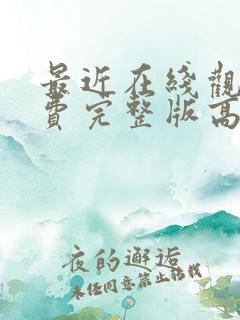 最近在线觀
費完整版高
夜的邂逅
未经同意禁止转载